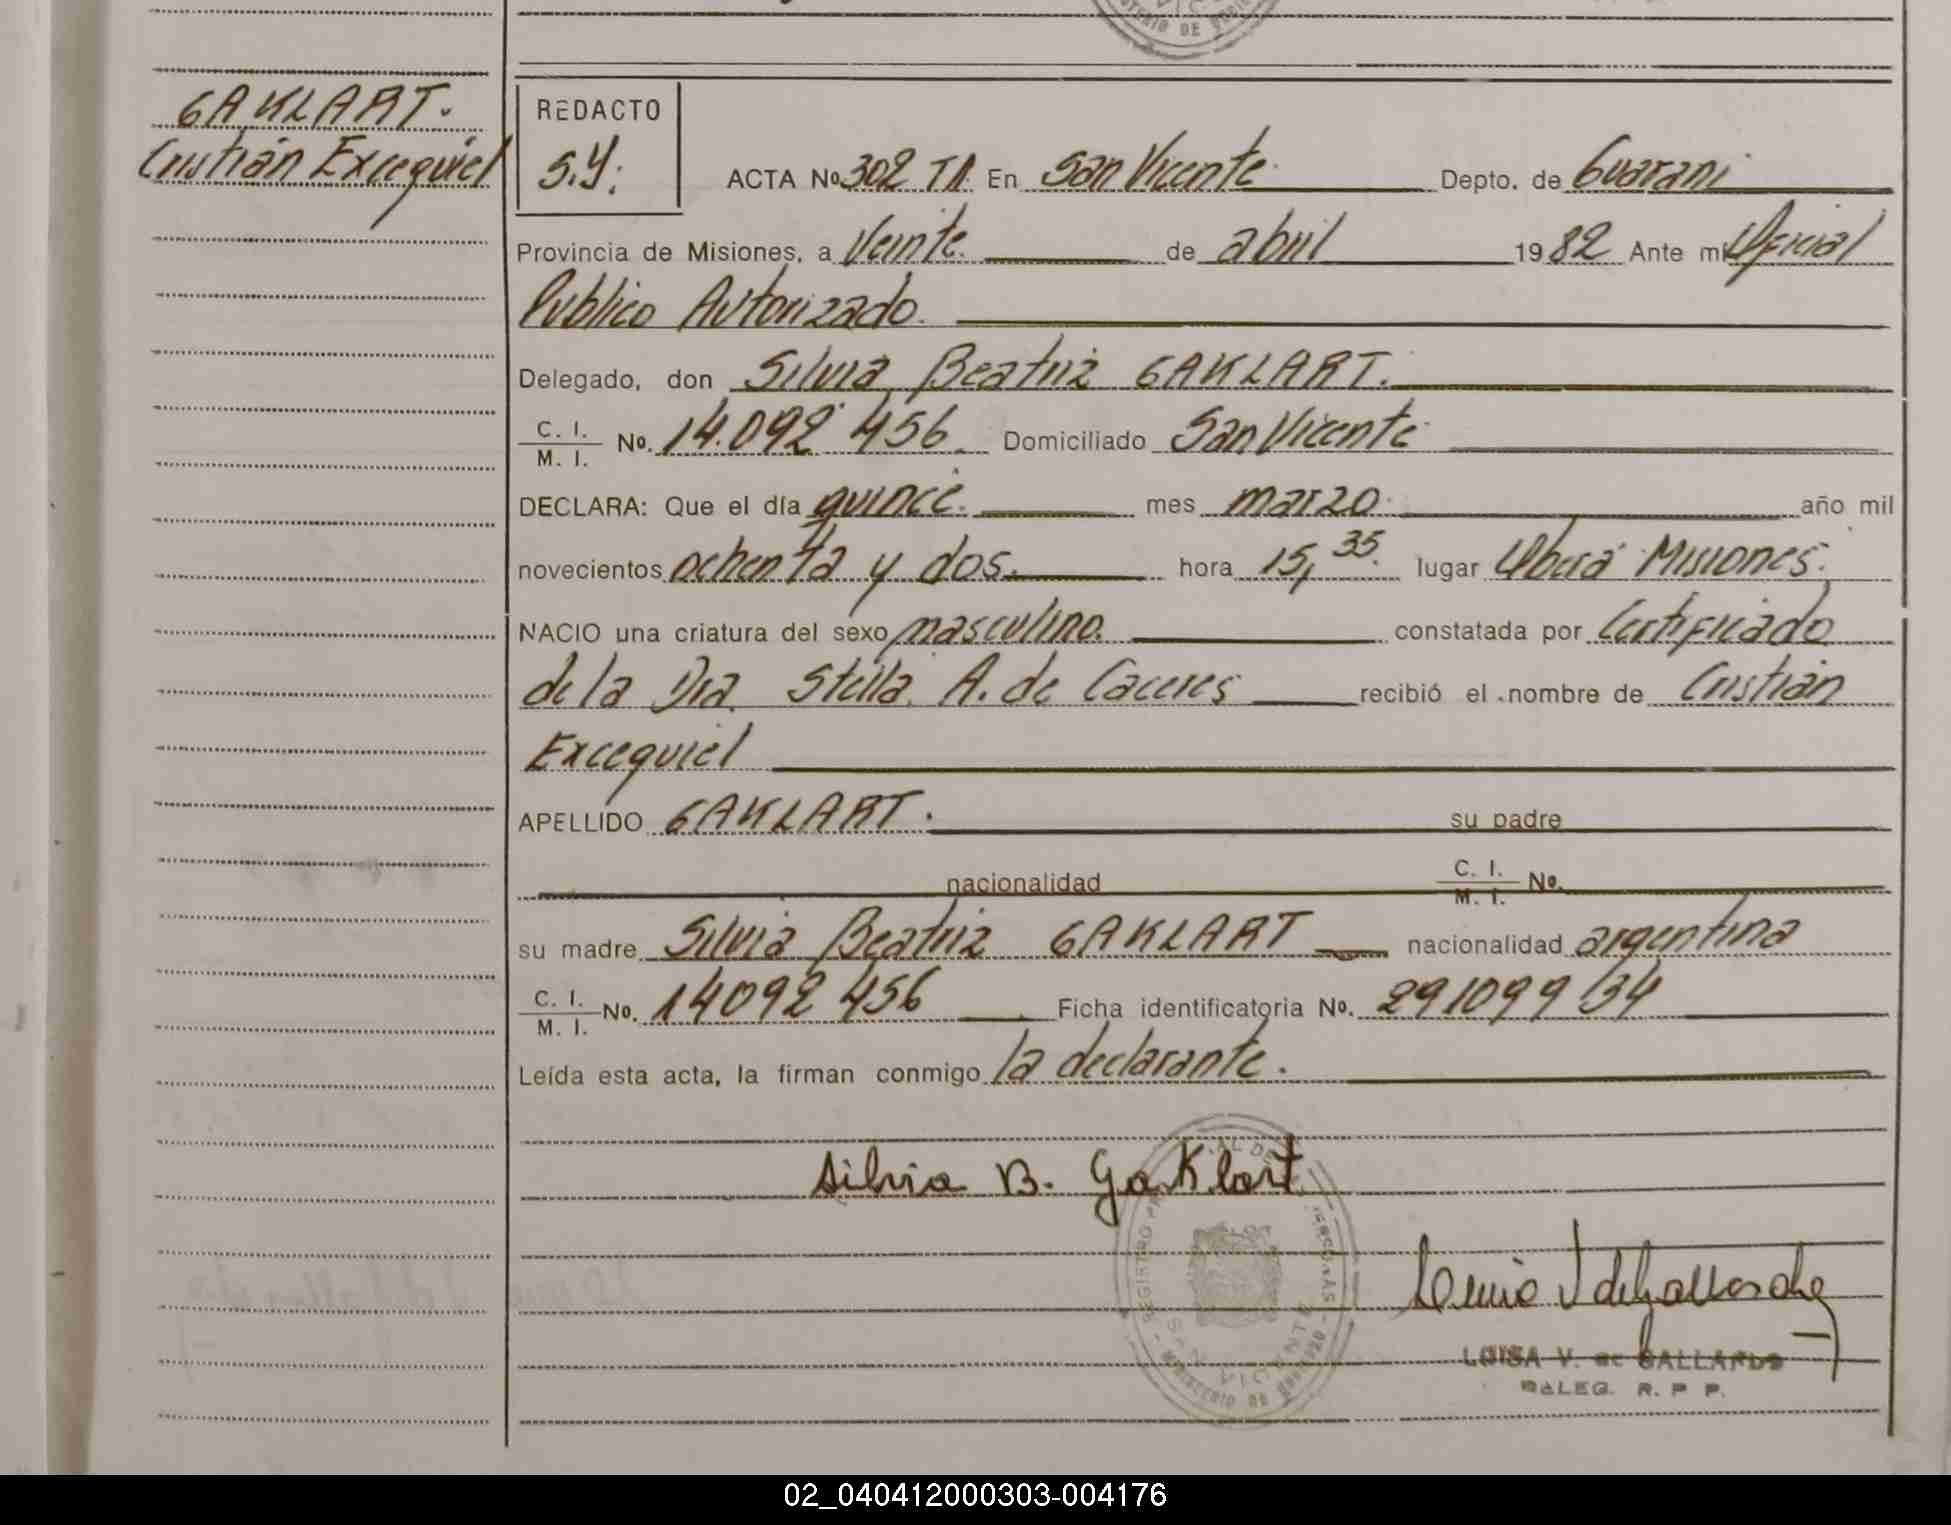 GAKLART.
Cristián Excequiel
REDACTO
S.Y.
ACTA No 302 TA En San Vicente Depto. de Guarani
Provincia de Misiones, a Veinte. de abril 1982 Ante mí Oficial
Publico Autorizado.
Delegado, don Silvia Beatriz GAKLART.
C. I.
M. I. No. 14.092 456. Domiciliado San Vicente
DECLARA: Que el día quince. mes marzo. año mil
novecientos ochenta y dos. hora 15,35. lugar Oberá Misiones.
NACIO una criatura del sexo masculino. constatada por Certificado
de la Dra. Stella A. de Caceres recibió el nombre de Cristián
Excequiel
APELLIDO GAKLART. su padre
nacionalidad C. I.
M. I. No.
su madre Silvia Beatriz GAKLART nacionalidad argentina
C. I.
M. I. No. 14092 456 Ficha identificatoria No. 291099/34
Leída esta acta, la firman conmigo la declarante.
Silvia B. Gaklart
LUISA V. de GALLARDO
DELEG. R. P. P.
02_040412000303-004176